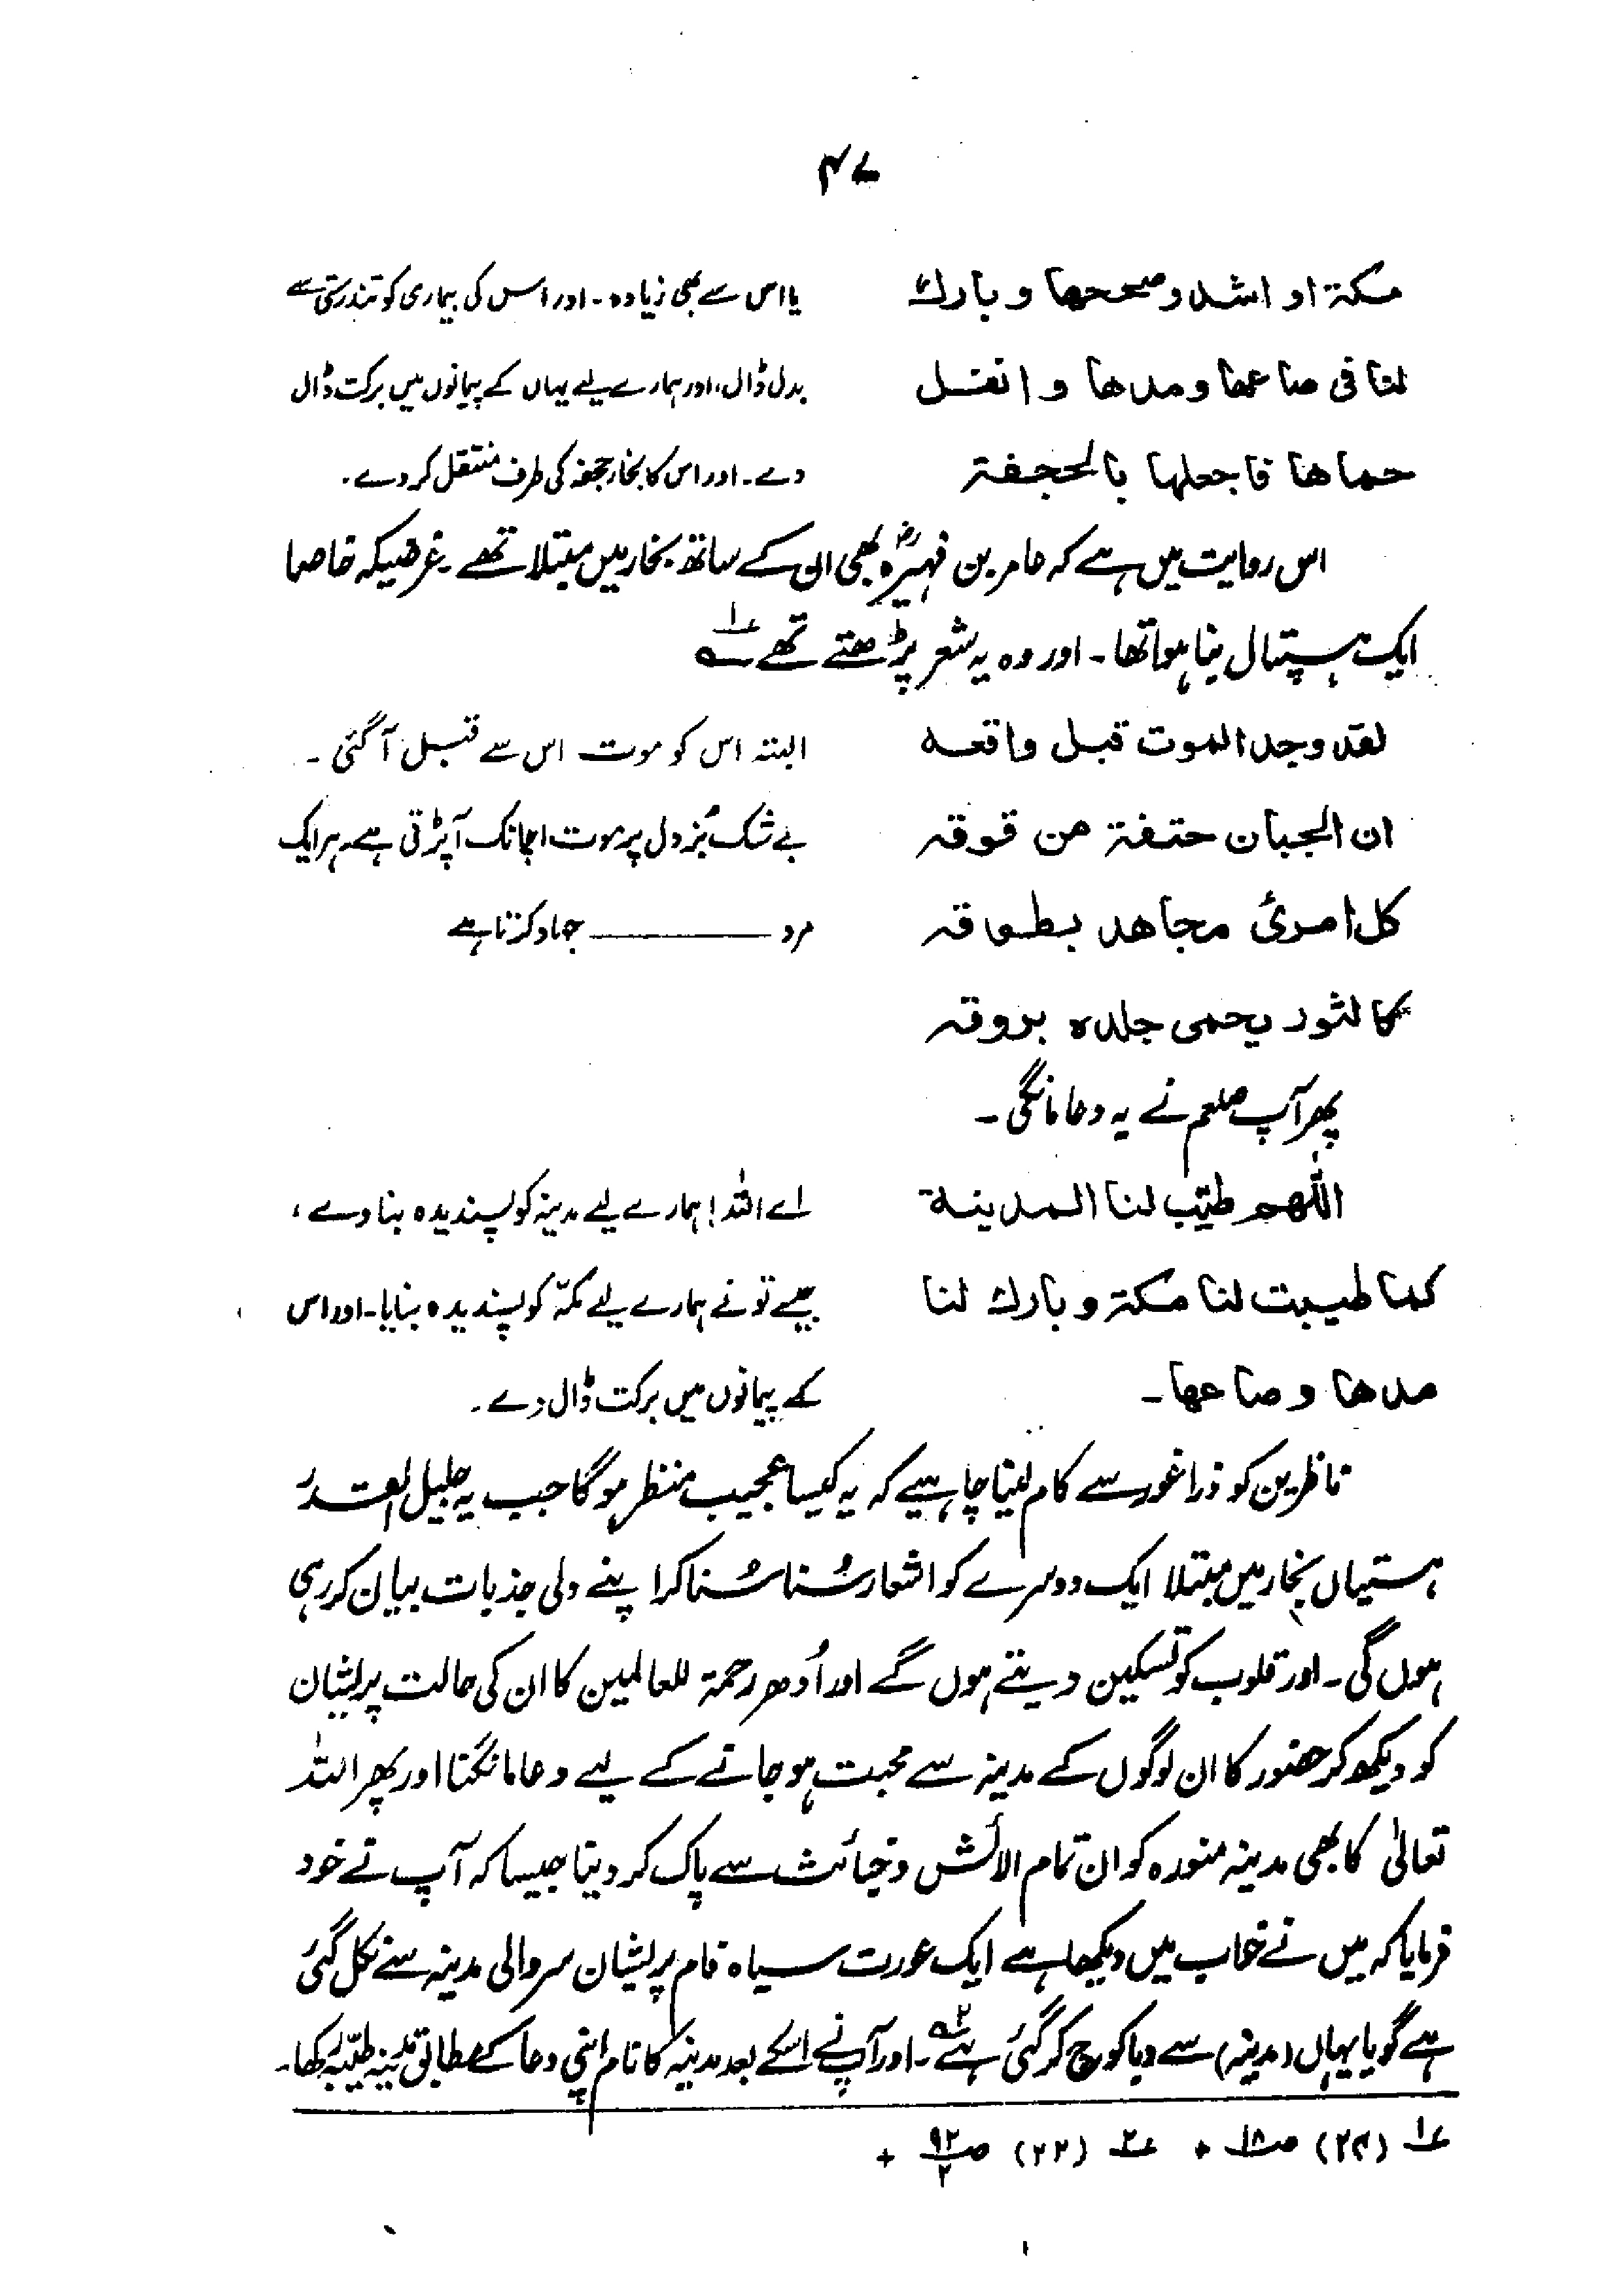 ۴۷
مكة او اشد وصححها وبارك یا اس سے بھی زیادہ۔ اور اس کی بیماری کو تندرستی سے
لنا فى صاعها ومدها وانقل بدل ڈال، اور ہمارے لیے یہاں کے پیمانوں میں برکت ڈال
حماها فاجعلها بالحجفة دے۔ اور اس کا بخار جحفہ کی طرف منتقل کر دے۔
اس روایت میں ہے کہ عامر بن فہیرہؓ بھی ان کے ساتھ بخار میں مبتلا تھے۔ غرضیکہ خاصا
ایک ہسپتال بنا ہوا تھا۔ اور وہ یہ شعر پڑھتے تھے ؎۱
لقد وجد الموت قبل واقعه البتہ اس کو موت اس سے قبل آگئی۔
ان الجبان حتفة من قوقه بے شک بُزدل پر موت اچانک آپڑتی ہے، ہر ایک
كل امرئ مجاهد بطواقه مرد ــــــــ جہاد کرتا ہے
كالثور يحمى جلده بروقه
پھر آپ صلعم نے یہ دعا مانگی۔
اللّٰهم طيّب لنا المدينة اے اللہ! ہمارے لیے مدینہ کو پسندیدہ بنا دے،
كما طيبت لنا مكة وبارك لنا جیسے تو نے ہمارے لیے مکّہ کو پسندیدہ بنایا۔ اور اس
مدها وصاعها۔ کے پیمانوں میں برکت ڈال دے۔
ناظرین کو ذرا غور سے کام لینا چاہیے کہ یہ کیسا عجیب منظر ہو گا جب یہ جلیل القدر
ہستیاں بخار میں مبتلا ایک دوسرے کو اشعار سُنا سُنا کر اپنے دلی جذبات بیان کر رہی
ہوں گی۔ اور قلوب کو تسکین دیتے ہوں گے اور اُدھر رحمۃ للعالمین کا ان کی حالت پریشان
کو دیکھ کر حضور کا ان لوگوں کے مدینہ سے محبت ہو جانے کے لیے دعا مانگنا اور پھر اللہ
تعالیٰ کا بھی مدینہ منورہ کو ان تمام الائش وخبائث سے پاک کر دینا جیسا کہ آپ نے خود
فرمایا کہ میں نے خواب میں دیکھا ہے ایک عورت سیاہ فام پریشان سر والی مدینہ سے نکل گئی
ہے گویا یہاں (مدینہ) سے وبا کوچ کر گئی ہے؎۲۔ اور آپ نے اسکے بعد مدینہ کا نام اپنی دعا کے مطابق مدینہ طیّبہ رکھا۔
؏۱ (۲۴) ص۱۸ + ؏۲ (۲۲) ص۹۲/۲ +